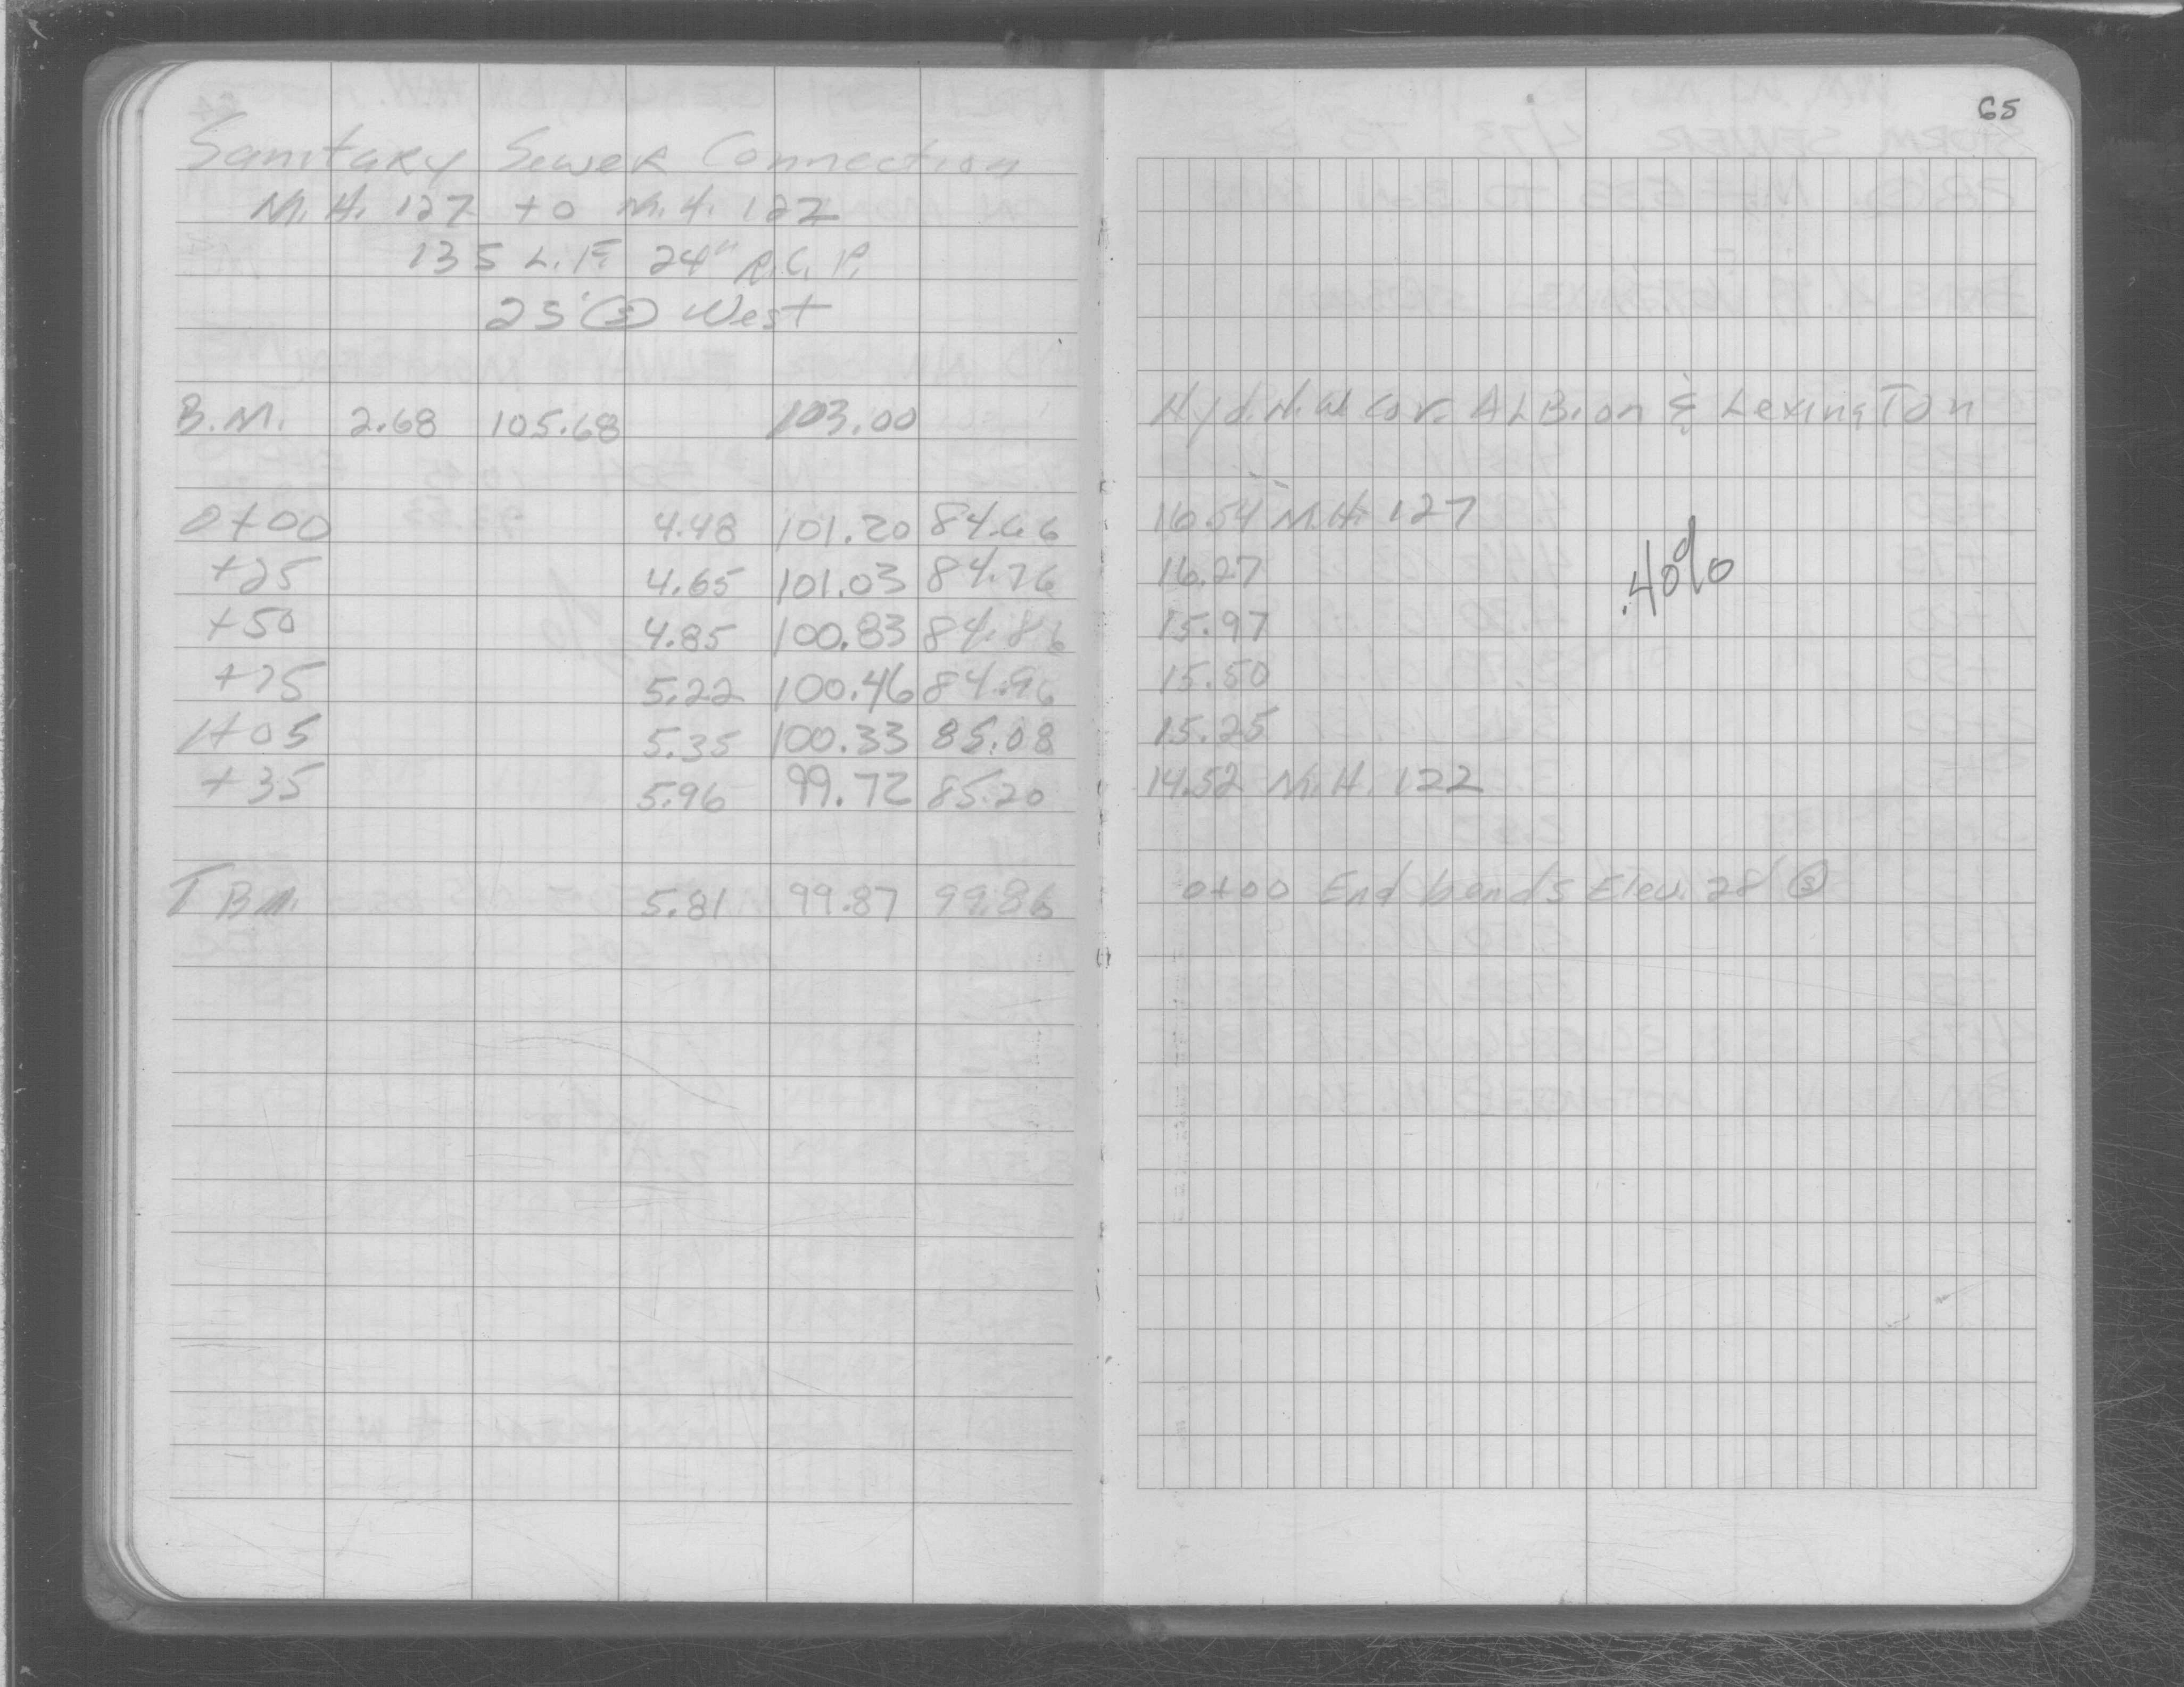 65
Sanitary Sewer Connection
M.H. 127 to M.H. 122
135 L.F. 24" R.C.P.
25' Ⓢ West
B.M. 2.68 105.68 103.00 Hyd. N.W. Cor. ALBion & LexingTon
0+00 4.48 101.20 84.66 16.54 M.H. 127
+25 4.65 101.03 84.76 16.27 .40%
+50 4.85 100.83 84.86 15.97
+75 5.22 100.46 84.96 15.50
1+05 5.35 100.33 85.08 15.25
+35 5.96 99.72 85.20 14.52 M.H. 122
T BM. 5.81 99.87 99.86 0+00 End bonds Elev. 28' Ⓢ